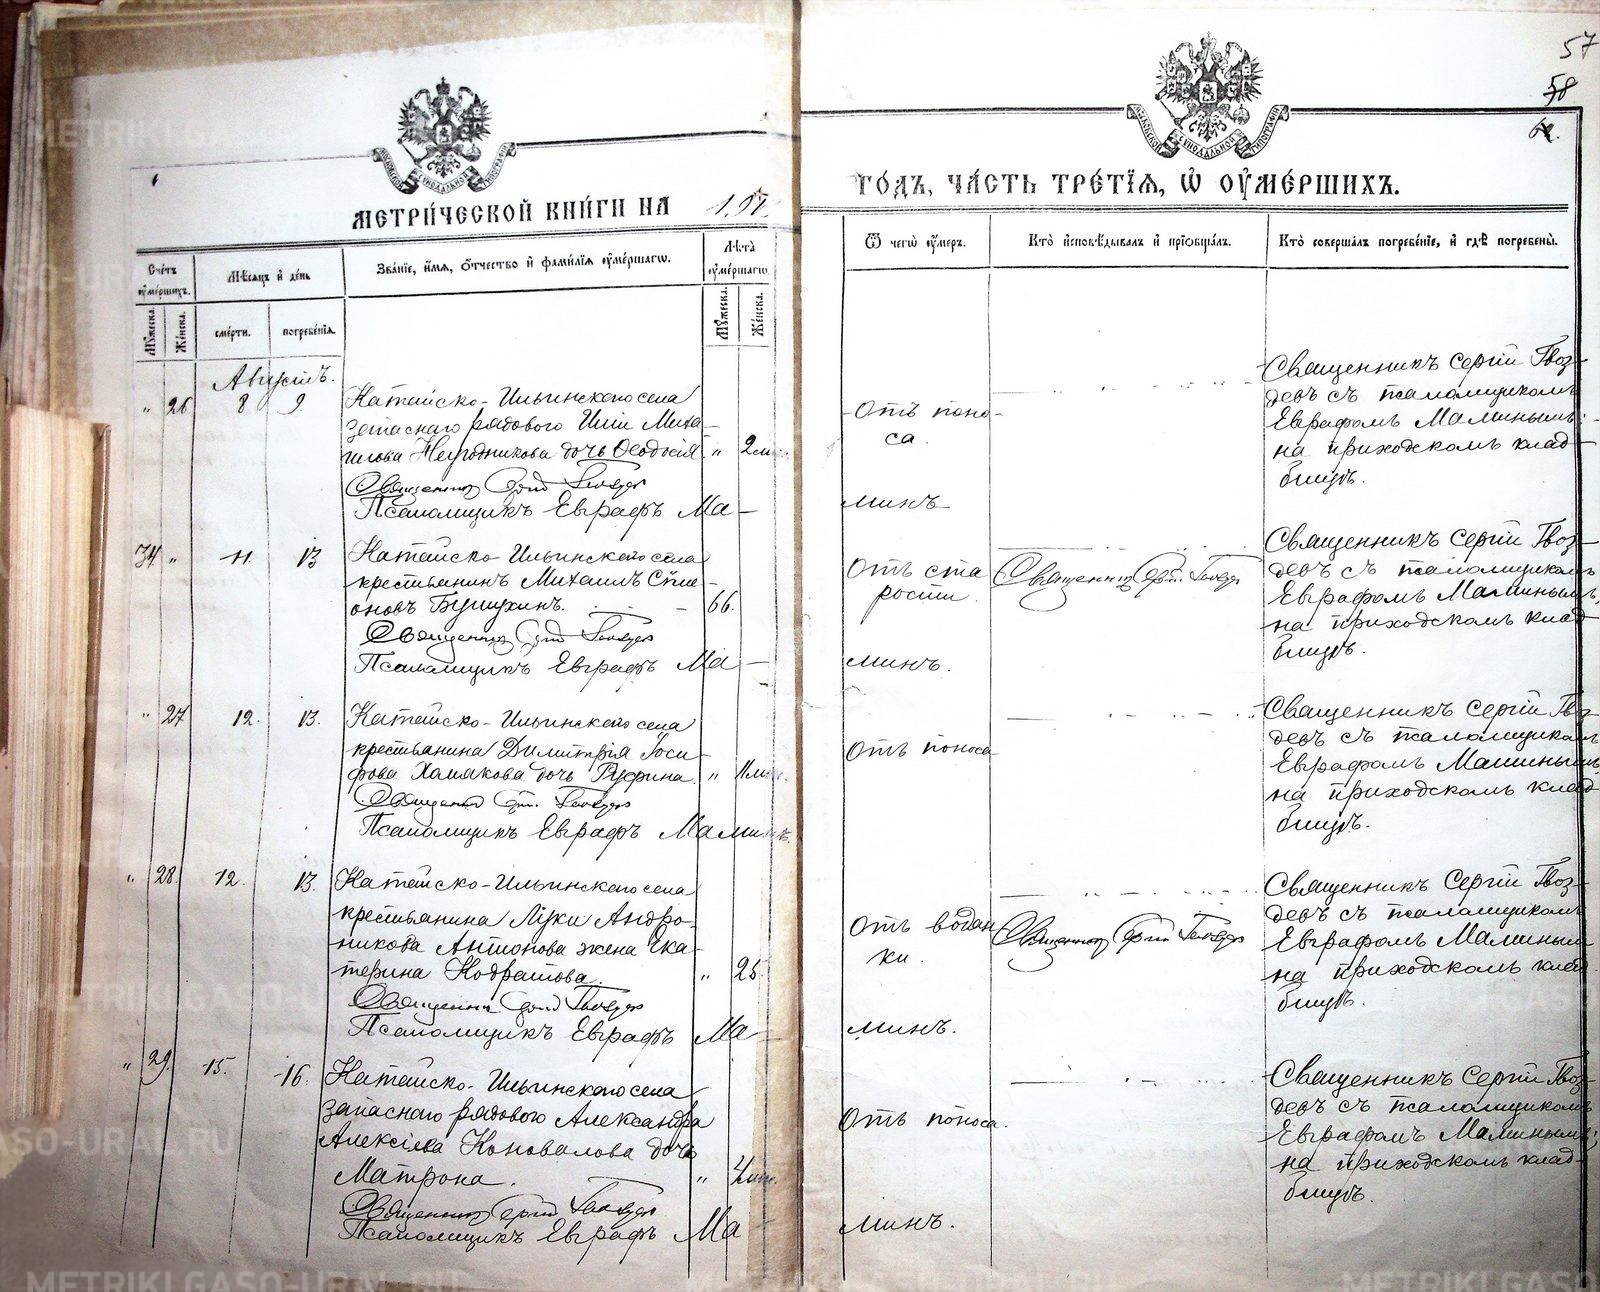 57
58
МЕТРИ́ЧЕСКОЙ КНИ́ГИ НА
ГО́ДЪ, ЧА́СТЬ ТРЕ́ТІЯ, Ѿ ОУМЕ́РШИХЪ.
МОСКОВСКОЙ СѴНОДАЛЬНОЙ ТИПОГРАФІИ
МОСКОВСКОЙ СѴНОДАЛЬНОЙ ТИПОГРАФІИ
Сче́тъ оуме́ршихъ.
Мѣ́сяцъ и де́нь
Зва́ніе, и́мя, о́тчество и фами́лія оуме́ршагѡ.
Лѣ́та оуме́ршагѡ.
Ѿ чегѡ̀ оу́меръ.
Кто̀ исповѣ́дывалъ и пріѡбща́лъ.
Кто̀ соверша́лъ погребе́ніе, и гдѣ̀ погребены̀.
Му́жеска.
Же́нска.
сме́рти.
погребе́нія.
Му́жеска.
Же́нска.
Августъ.
" 26 8 9
Катайско-Ильинскаго села
запаснаго рядового Иліи Миха-
илова дочь Ѳеодосія " 2
Священникъ Сергій Гвоздевъ
Псаломщикъ Евграфъ Ма-
минъ
Отъ поно-
са.
Священникъ Сергій Гвоз-
девъ съ псаломщикомъ
Евграфомъ Маминымъ;
на приходскомъ клад-
бищѣ.
34 " 11. 13
Катайско-Ильинскаго села
крестьянинъ Михаилъ Симе-
оновъ 66.
Священникъ Сергій Гвоздевъ
Псаломщикъ Евграфъ Ма-
минъ.
Отъ ста
рости.
Священникъ Сергій Гвоздевъ
Священникъ Сергій Гвоз-
девъ съ псаломщикомъ
Евграфомъ Маминымъ,
на приходскомъ клад
бищѣ.
" 27 12. 13.
Катайско-Ильинскаго села
крестьянина Димитрія Іоси-
фова Хамакова дочь Руфина. " 11
Священникъ Сергій Гвоздевъ
Псаломщикъ Евграфъ Маминъ.
Отъ поноса
Священникъ Сергій Гвоз
девъ съ псаломщикомъ
Евграфомъ Маминымъ,
на приходскомъ клад
бищѣ.
" 28. 12. 13.
Катайско-Ильинскаго села
крестьянина Луки Андро-
никова Антонова жена Ека-
терина Кодратова. " 25.
Священникъ Сергій Гвоздевъ
Псаломщикъ Евграфъ Ма-
минъ.
Отъ водян
ки.
Священникъ Сергій Гвоздевъ
Священникъ Сергій Гвоз-
девъ съ псаломщикомъ
Евграфомъ Маминымъ
на приходскомъ клад
бищѣ.
" 29. 15. 16.
Катайско-Ильинскаго села
запаснаго рядового Александра
Алексіева Коновалова дочь
Матрона. " 4
Священникъ Сергій Гвоздевъ
Псаломщикъ Евграфъ Ма
минъ.
Отъ поноса.
Священникъ Сергій Гвоз
девъ съ псаломщикомъ
Евграфомъ Маминымъ;
на приходскомъ клад-
бищѣ.
METRIKI.GASO-URAL.RU